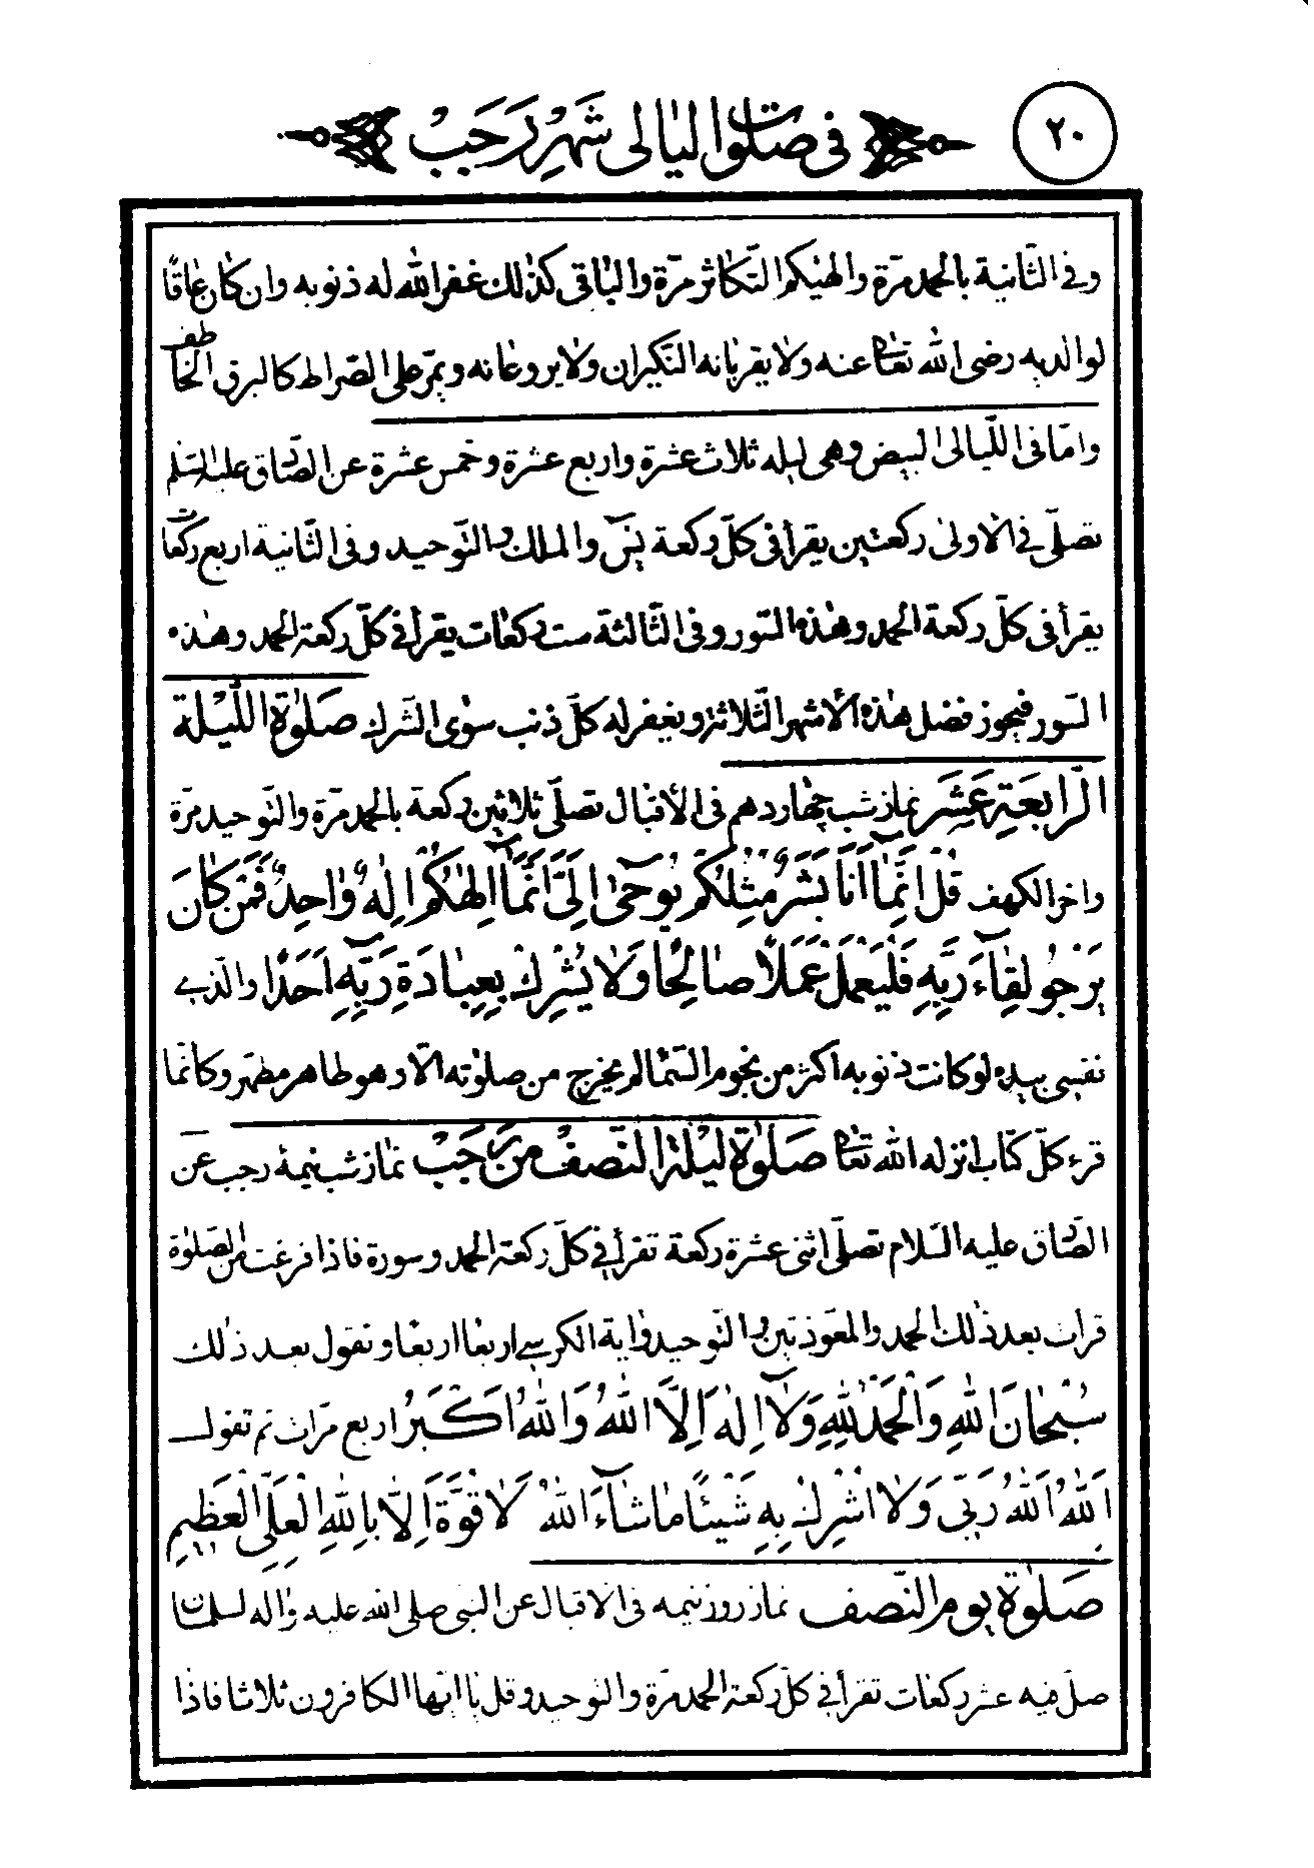 ٢٠
فى صلوات ليالى شهر رَجَبْ
وفى الثّانية بالحمد مرّة والهيكم التّكاثر مرّة والباقى كذلك غفر الله له ذنوبه وان كان عاقّا
لوالديه رضى الله تعالى عنه ولا يقربانه النّكيران ولا يروعانه ويمرّ على الصّراط كالبرق الخاطف
وامّا فى اللّيالى البيض وهى ليله ثلاث عشرة واربع عشرة وخمس عشرة عن الصّادق عليه السّلم
تصلّى فى الاولى ركعتين يقرأ فى كلّ ركعة يسۤ والملك والتّوحيد وفى الثّانية اربع ركعات
يقرأ فى كلّ ركعة الحمد وهذه السّور وفى الثّالثة ست ركعات يقرأ فى كلّ ركعة الحمد وهذه
السّور فيحوز فضل هذه الأشهر الثّلاثة ويغفر له كلّ ذنب سوى الشّرك صَلوٰة اللَّيْلَة
الرّابِعَةِ عَشَرَ نماز شب چهاردهم فى الأقبال تصلّى ثلاثين ركعة بالحمد مرّة والتّوحيد مرّة
واخر الكهف قُلْ اِنَّمٰا اَنَا بَشَرٌ مِثْلُكُمْ يُوحىٰ اِلَىَّ اَنَّمٰا اِلٰهُكُمْ اِلٰهٌ وٰاحِدٌ فَمَنْ كٰانَ
يَرْجُو لِقٰاۤءَ رَبِّهِ فَلْيَعْمَلْ عَمَلًا صٰالِحًا وَلٰا يُشْرِكْ بِعِبٰادَةِ رَبِّهِ اَحَدًا والّذى
نفسى بيده لو كانت ذنوبه اكثر من نجوم السّماء لم يخرج من صلوته الّا وهو طاهر مطهّر وكانّما
قرء كلّ كتاب انزله الله تعالى صَلوٰة لَيْلَة النّصفْ مِنْ رَجَبْ نماز شب نيمهٔ رجب عن
الصّادق عليه السّلام تصلّى اثنى عشرة ركعة تقرأ فى كلّ ركعة الحمد وسورة فاذا فرغت من الصّلوٰة
قرات بعد ذلك الحمد والمعوّذتين والتّوحيد واية الكرسى اربعا اربعا وتقول بعد ذلك
سُبْحٰانَ اللهِ وَالْحَمْدُ لِلّٰهِ وَلٰاۤ اِلٰهَ اِلَّا اللهُ وَاللهُ اَكْبَرُ اربع مرّات ثم تقول
اَللهُ اَللهُ رَبّى وَلٰا اُشْرِكُ بِهِ شَيْئًا مٰا شٰاۤءَ اللهُ لٰا قُوَّةَ اِلّٰا بِاللهِ الْعَلِىِّ الْعَظيمِ
صَلوٰة يوم النّصف نماز روز نيمه فى الاقبال عن النبى صلى الله عليه واله لسلمان
صلّ فيه عشر ركعات تقرأ فى كلّ ركعة الحمد مرّة والتوحيد وقل يا ايّها الكافرون ثلاثا فاذا